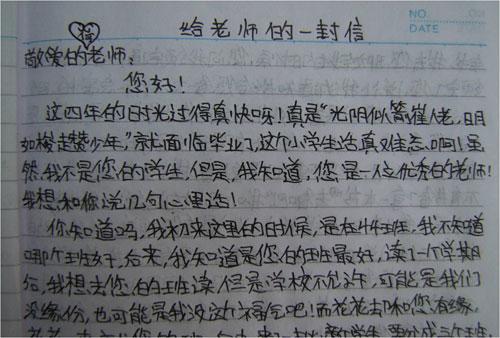 NO.
DATE
给老师的一封信
敬爱的老师：
您好！
这四年的时光过得真快呀！真是“光阴似箭催人老，日月
如梭赶少年。”就面临毕业了，这个小学生活真难忘啊！虽
然，我不是您的学生，但是，我知道，您是一位优秀的老师！
我想和你说几句心里话！
你知道吗，我初来这里的时候，是在4年班，我不知道
哪个班好，后来，我知道是您的班最好，读了一个学期
后，我想去您的班读，但是学校不允许，可能是我们
没缘份，也可能是我没这个福气吧！而花花却和您有缘，